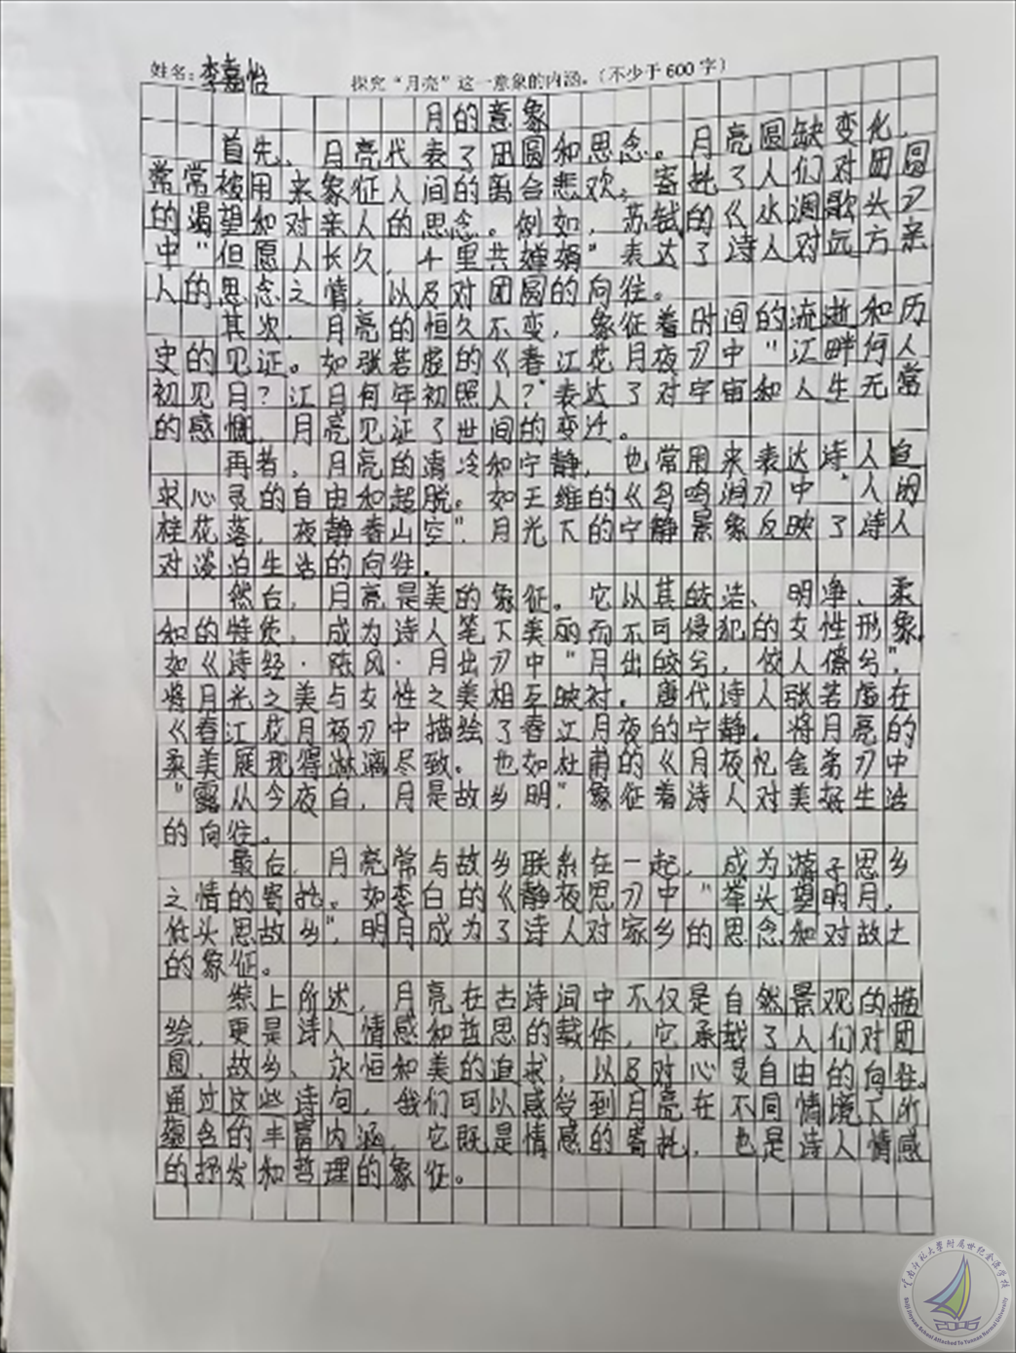 姓名：李嘉怡 探究“月亮”这一意象的内涵。（不少于600字）
月的意象
首先，月亮代表了团圆和思念。月亮圆缺变化，
常常被用来象征人间的离合悲欢，寄托了人们对团圆
的渴望和对亲人的思念。例如，苏轼的《水调歌头》
中“但愿人长久，千里共婵娟”表达了诗人对远方亲
人的思念之情，以及对团圆的向往。
其次，月亮的恒久不变，象征着时间的流逝和历
史的见证。如张若虚的《春江花月夜》中“江畔何人
初见月？江月何年初照人？”表达了对宇宙和人生无常
的感慨，月亮见证了世间的变迁。
再者，月亮的清冷和宁静，也常用来表达诗人追
求心灵的自由和超脱。如王维的《鸟鸣涧》中“人闲
桂花落，夜静春山空”，月光下的宁静景象反映了诗人
对淡泊生活的向往。
然后，月亮是美的象征。它以其皎洁、明净、柔
和的特质，成为诗人笔下美丽而不可侵犯的女性形象。
如《诗经·陈风·月出》中“月出皎兮，佼人僚兮”，
将月光之美与女性之美相互映衬。唐代诗人张若虚在
《春江花月夜》中描绘了春江月夜的宁静，将月亮的
柔美展现得淋漓尽致。也如杜甫的《月夜忆舍弟》中
“露从今夜白，月是故乡明”，象征着诗人对美好生活
的向往。
最后，月亮常与故乡联系在一起，成为游子思乡
之情的寄托。如李白的《静夜思》中“举头望明月，
低头思故乡”，明月成为了诗人对家乡的思念和对故土
的象征。
综上所述，月亮在古诗词中不仅是自然景观的描
绘，更是诗人情感和哲思的载体，它承载了人们对团
圆、故乡、永恒和美的追求，以及对心灵自由的向往。
通过这些诗句，我们可以感受到月亮在不同情境下所
蕴含的丰富内涵，它既是情感的寄托，也是诗人情感
的抒发和哲理的象征。
云南师范大学附属世纪金源学校